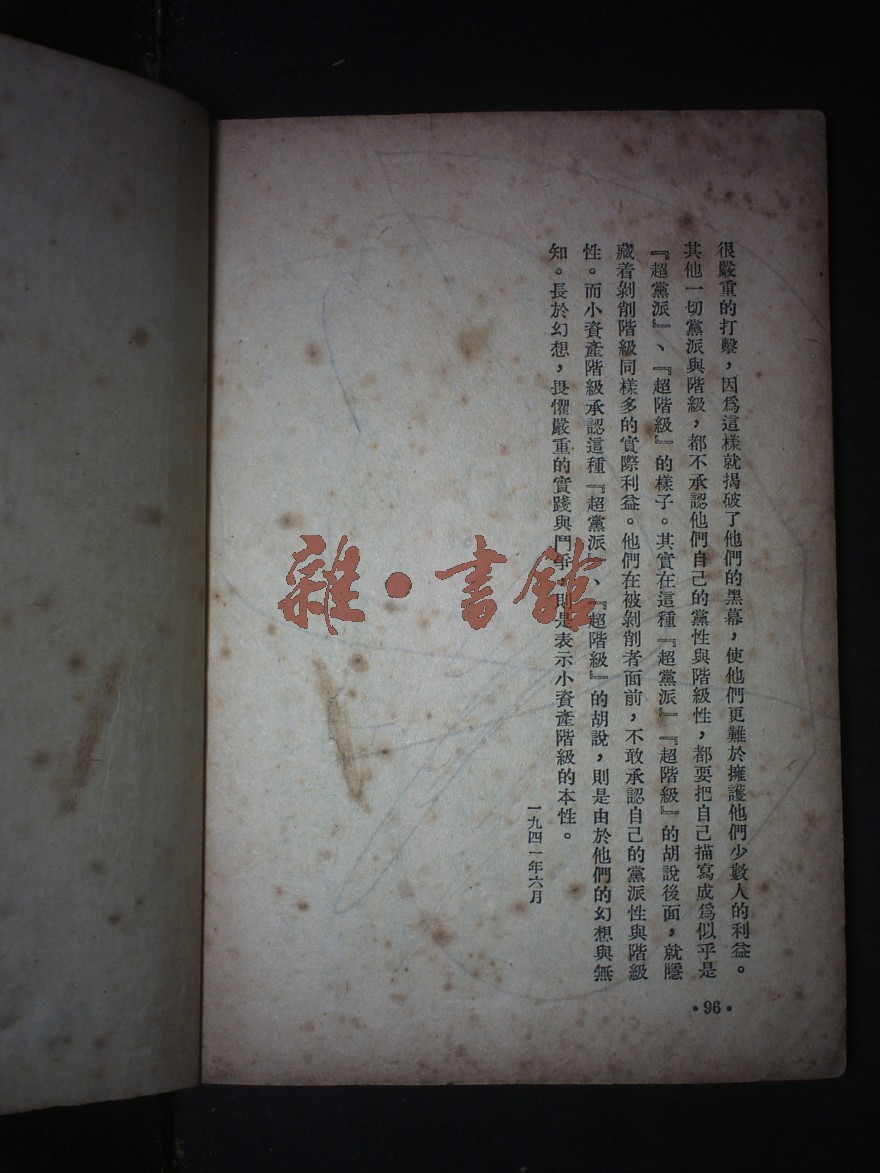 很嚴重的打擊，因爲這樣就揭破了他們的黑幕，使他們更難於擁護他們少數人的利益。
其他一切黨派與階級，都不承認他們自己的黨性與階級性，都要把自己描寫成爲似乎是
『超黨派』、『超階級』的樣子。其實在這種『超黨派』『超階級』的胡說後面，就隱
藏着剝削階級同樣多的實際利益。他們在被剝削者面前，不敢承認自己的黨派性與階級
性。而小資產階級承認這種『超黨派』、『超階級』的胡說，則是由於他們的幻想與無
知。長於幻想，畏懼嚴重的實踐與鬥爭，則是表示小資產階級的本性。
一九四一年六月
•96•
雜•書館